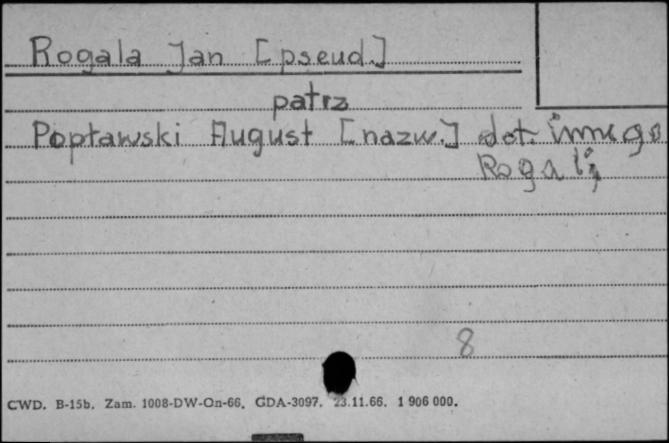 Rogala Jan [pseud.]
patrz
Popławski August [nazw.] dot. innego
8
CWD. B-15b. Zam. 1008-DW-On-66. GDA-3097. 23.11.66. 1 906 000.